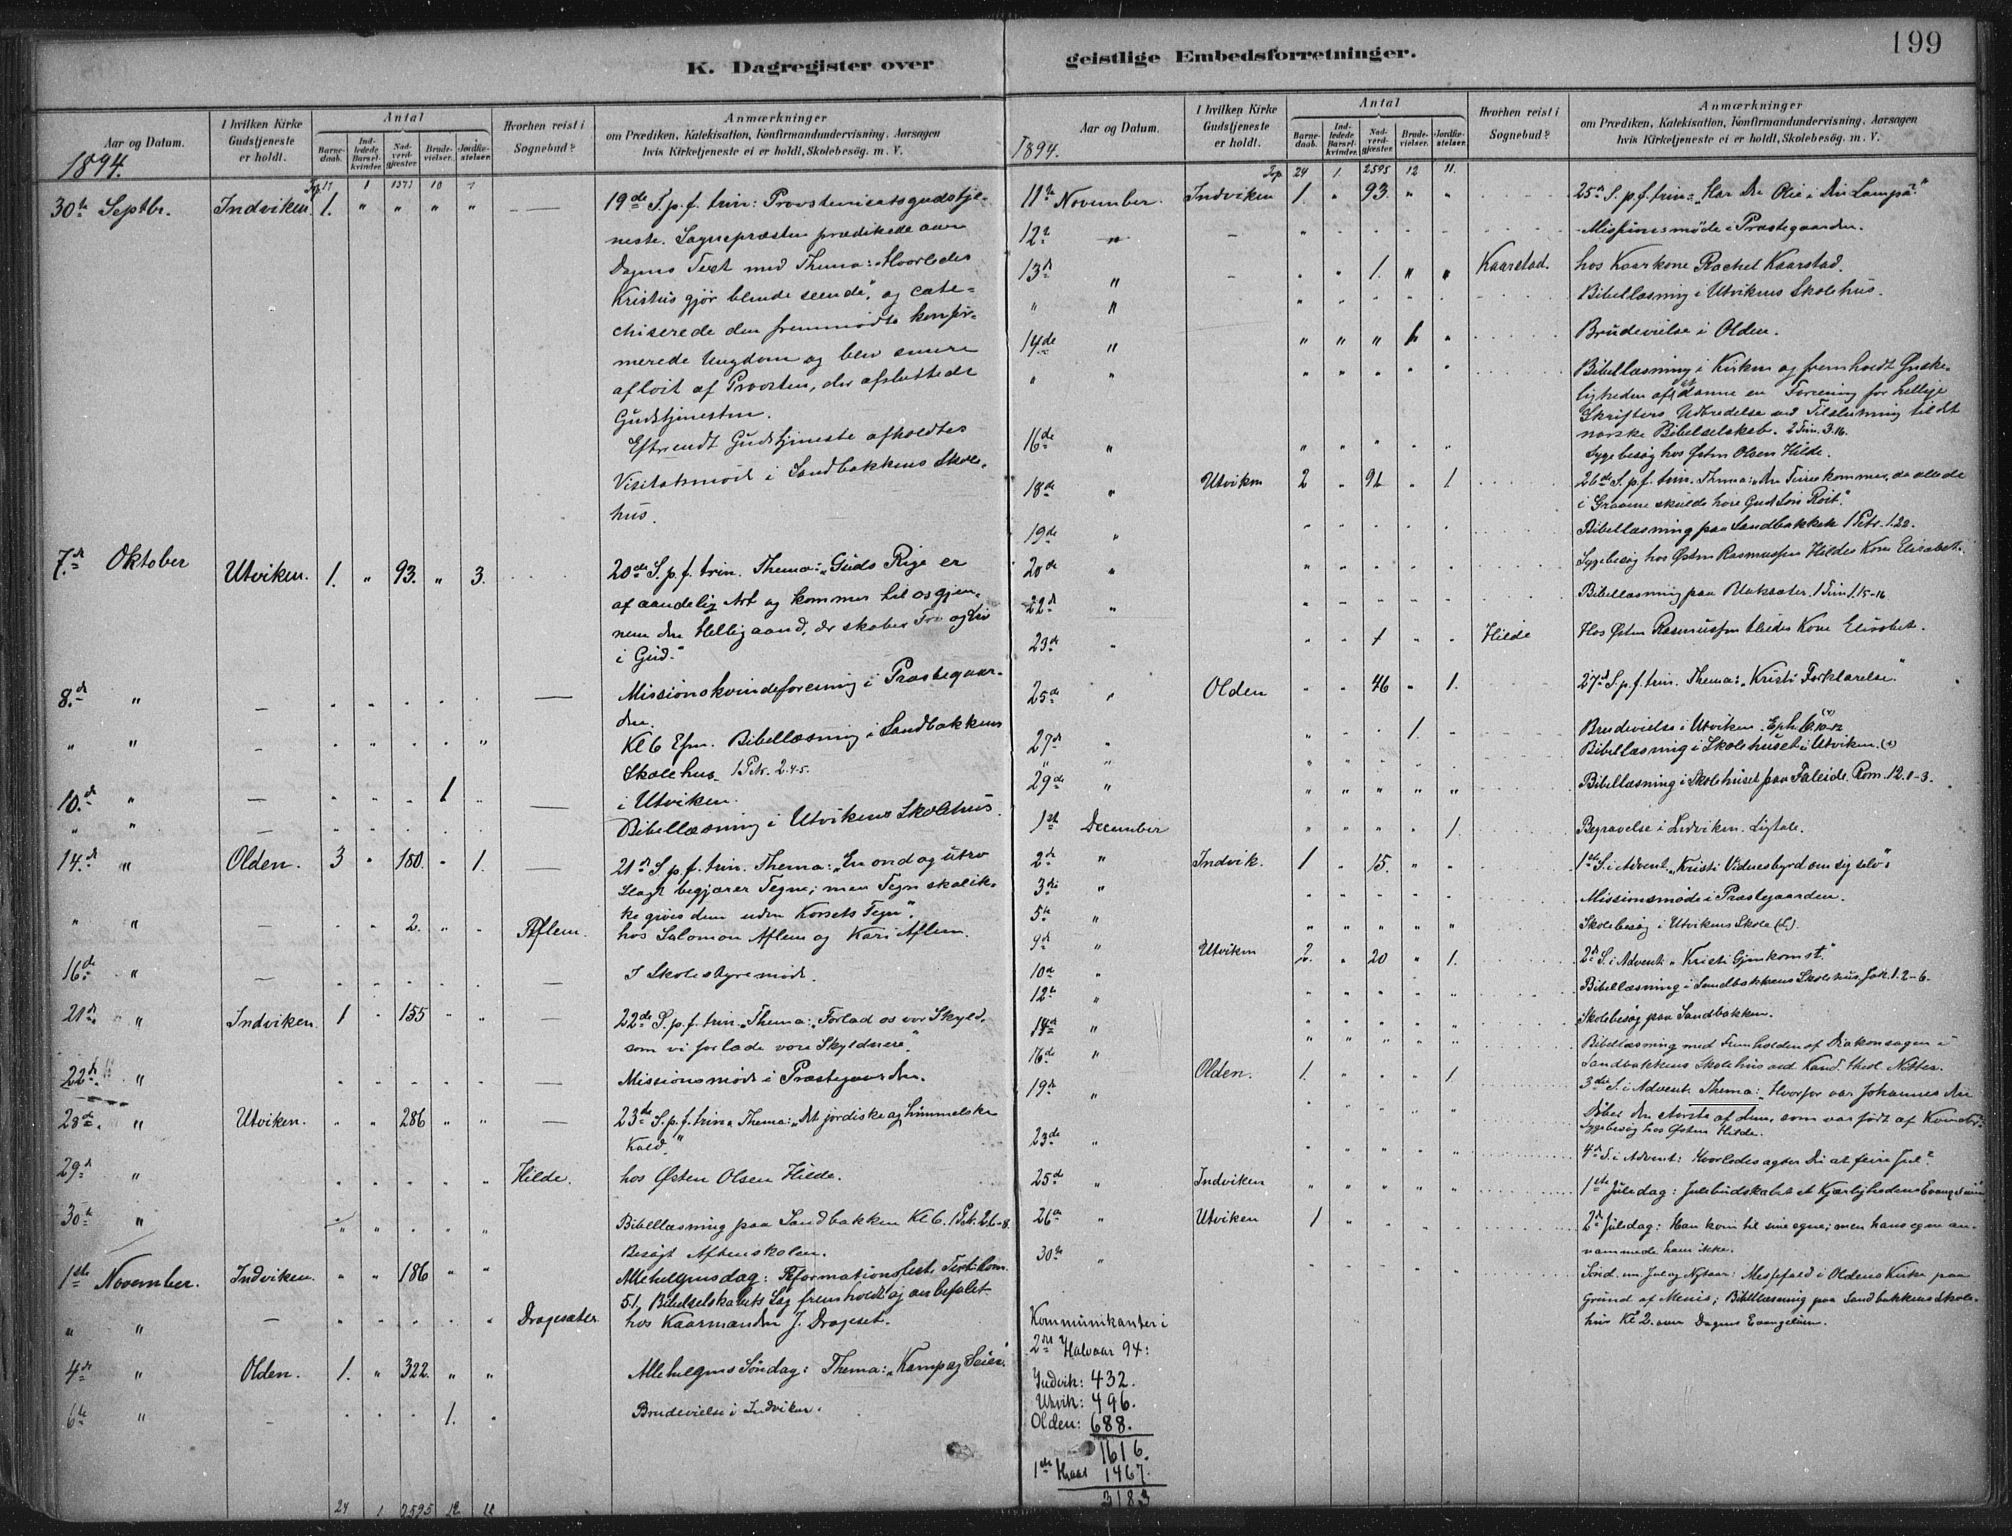 K. Dagregister over geistlige Embedsforretninger.
199
Aar og Datum.
I hvilken Kirke Gudstjeneste er holdt.
Antal
Barnedaab.
Indledede Barselkvinder.
Nadverdgjæster
Brudevielser.
Jordfæstelser.
Hvorhen reist i Sognebud?
Anmærkninger
om Prædiken, Katekisation, Konfirmandundervisning, Aarsagen
hvis Kirketjeneste ei er holdt, Skolebesøg. m. V.
1894.
30te Septbr. Indviken 1. " " " " — 19de S. p. f. trin: Provstevisitatsgudstje-
neste. Sognepræsten prædikede over
Dagens Text med Thema: "Hvorledes
Kristus gjør blinde seende", og cate-
chiserede den fremmødte konfir-
merede Ungdom og blev senere
afløst af Provsten, der afsluttede
Gudstjenesten.
Efter endt Gudstjeneste afholdtes
Visitatsmøde i Sandbakkens Skole-
hus.
7de Oktober Utviken. 1. " 93. " 3. 20de S. p. f. trin. Thema: "Guds Rige er
af aandelig Art og kommer til os gjen-
nem den Helligaand, der skaber Tro og Liv
i Gud."
8de " — Missionskvindeforening i Præstegaar-
den.
" " — Kl 6 Efm. Bibellæsning i Sandbakkens
Skolehus. 1 Petr. 2.4-5.
10.de " — 1 — i Utviken.
" " — Bibellæsning i Utvikens Skolehus.
14.de " Olden. 3 " 180. " 1. — 21de S. p. f. trin. Thema: "En ond og utro
Slægt begjærer Tegn; men Tegn skal ik-
ke gives dem uden Korsets Tegn".
" " — 2. Aflem. hos Salomon Aflem og Kari Aflem.
16.de " — I Skolestyremøde.
21de " Indviken. 1 " 155 " " — 22de S. p. f. trin. Thema: "Forlad os vor Skyld,
som vi forlade vore Skyldnere".
22de " — Missionsmøde i Præstegaarden.
28de. " Utviken. 286 — 23de S. p. f. trin. Thema: "Det jordiske og himmelske
Kald."
29de " Hilde. hos Østen Olsen Hilde.
30te " Bibellæsning paa Sandbakken Kl 6. 1 Petr. 2.6-8
Besøgt Aftenskolen.
1ste November. Indviken. " " 186 " " Allehelgensdag: Reformationsfest. Text: Rom.
5.1, Bibelselskabets Sag fremholdt og anbefalet.
" " — Dragesæter hos Kaarmanden J. Dragset.
4de " Olden. 1. " 322. " " Allehelgens Søndag: Thema: "Kamp og Seier".
6te " — 1. Brudevielse i Indviken.
24 1 2595 12 11
Aar og Datum.
I hvilken Kirke Gudstjeneste er holdt.
Antal
Barnedaab.
Indledede Barselkvinder.
Nadverdgjæster.
Brudevielser.
Jordfæstelser.
Hvorhen reist i Sognebud?
Anmærkninger
om Prædiken, Katekisation, Konfirmandundervisning, Aarsagen
hvis Kirketjeneste ei er holdt, Skolebesøg. m. V.
1894.
Trp. 24 1. 2595 12 11.
11te November. Indviken 1. " 93. " " 25de S. p. f. trin: "Har Du Olie i Din Lampe?"
12te " — Missionsmøde i Præstegaarden.
13de " — 1. " " Kaarstad. hos Kaarkone Rachel Kaarstad.
" " Bibellæsning i Utvikens Skolehus.
14de " " " " 1. " Brudevielse i Olden.
" " Bibellæsning i Kirken og fremholdt Ønske-
ligheden af at danne en Forening for hellige
Skrifters Udbredelse ved Tilslutning til det
norske Bibelselskab. 2 Tim. 3.16.
16de " Sygebesøg hos Østen Olsen Hilde.
18de " Utviken 2 " 91. " 1 26de S. p. f. trin. Thema: "Den Time kommer, da alle de
i Gravene skulde høre Guds Søns Røst".
19de " Bibellæsning paa Sandbakken 1 Petr. 1.22.
20de " Sygebesøg hos Østen Rasmussen Hildes Kone Elisabet.
22de " Bibellæsning paa 1 Tim. 1.15-16
23de " 1 Hilde Hos Østen Rasmussen Hildes Kone Elisabet.
25de " Olden 46 " 1. 27de S. p. f. trin. Thema: "Kristi Forklarelse".
27de " 1. Brudevielse i Utviken. Eph. 6.10-12
" " Bibellæsning i Skolehuset i Utviken.
29de " Bibellæsning i Skolehuset paa Faleide. Rom. 12.1-3.
1ste December 1. Begravelse i Indviken. Ligtale.
2de " Indvik. 1 " 15. " 1ste S. i Advent. "Kristi Vidnesbyrd om sig selv".
3die " Missionsmøde i Præstegaarden.
5te " Skolebesøg i Utvikens Skole
9de " Utviken 2. " 20 " 1. 2de S. i Advent. "Kristi Gjenkomst."
10de " Bibellæsning i Sandbakkens Skolehus, Jak. 1.2-6.
12te " Skolebesøg paa Sandbakken.
14de " Bibellæsning med Fremholden af Diakonsagen i
Sandbakkens Skolehus ved Kand. theol.
16de " Olden. 1. 1. 3die S. i Advent. Thema: "Hvorfor var Johannes den
Døber den største af dem, som var født af Kvinder?"
19de " Sygebesøg hos Østen Hilde.
23de " 4de S. i Advent: Hvorledes agter Du at feire Jul?
25de " Indviken 1ste Juledag: Julebudskabet et Kjærlighedens Evangelium
26de " Utviken 1 2de Juledag: Han kom til sine egne; men hans egne an-
nammede ham ikke.
30te " Sønd. m. Jul og Nytaar: Messefald i Oldens Kirke paa
Grund af Menis; Bibellæsning paa Sandbakkens Skole-
hus Kl 2. over Dagens Evangelium.
Kommunikanter i
2den Halvaar 94:
Indvik: 432.
Utvik: 496.
Olden: 688.
1616.
1ste Halv 1467.
3183